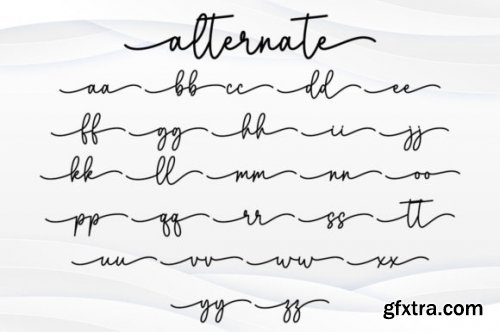 alternate
aa bb cc dd ee
ff gg hh ii jj
kk ll mm nn oo
pp qq rr ss tt
uu vv ww xx
yy zz
gfxtra.com